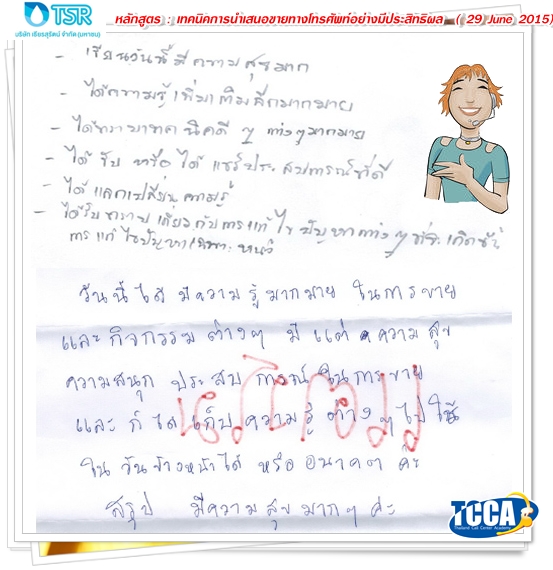 TSR
บริษัท เธียรสุรัตน์ จำกัด (มหาชน)
หลักสูตร : เทคนิคการนำเสนอขายทางโทรศัพท์อย่างมีประสิทธิผล ( 29 June 2015)
- เรียนวันนี้มีความสุขมาก
- ได้ความรู้เพิ่มเติมอีกมากมาย
- ได้ทราบเทคนิคดี ๆ ต่างๆมากมาย
- ได้ รับ หรือ ได้ แชร์ประสบการณ์ที่ดี
- ได้ แลกเปลี่ยน ความรู้
- ได้รับทราบ เกี่ยวกับการแก้ไขปัญหาต่างๆ ที่จะเกิดขึ้น
การแก้ไขปัญหาเฉพาะหน้า
วันนี้ได้ มีความรู้มากมาย ในการขาย
และกิจกรรมต่างๆ มีแต่ความสุข
ความสนุก ประสบการณ์ในการขาย
และ ก็ได้เก็บความรู้ต่างๆไปใช้
ในวันข้างหน้าได้ หรืออนาคต ค่ะ
สรุป มีความสุขมากๆ ค่ะ
TCCA
Thailand Call Center Academy